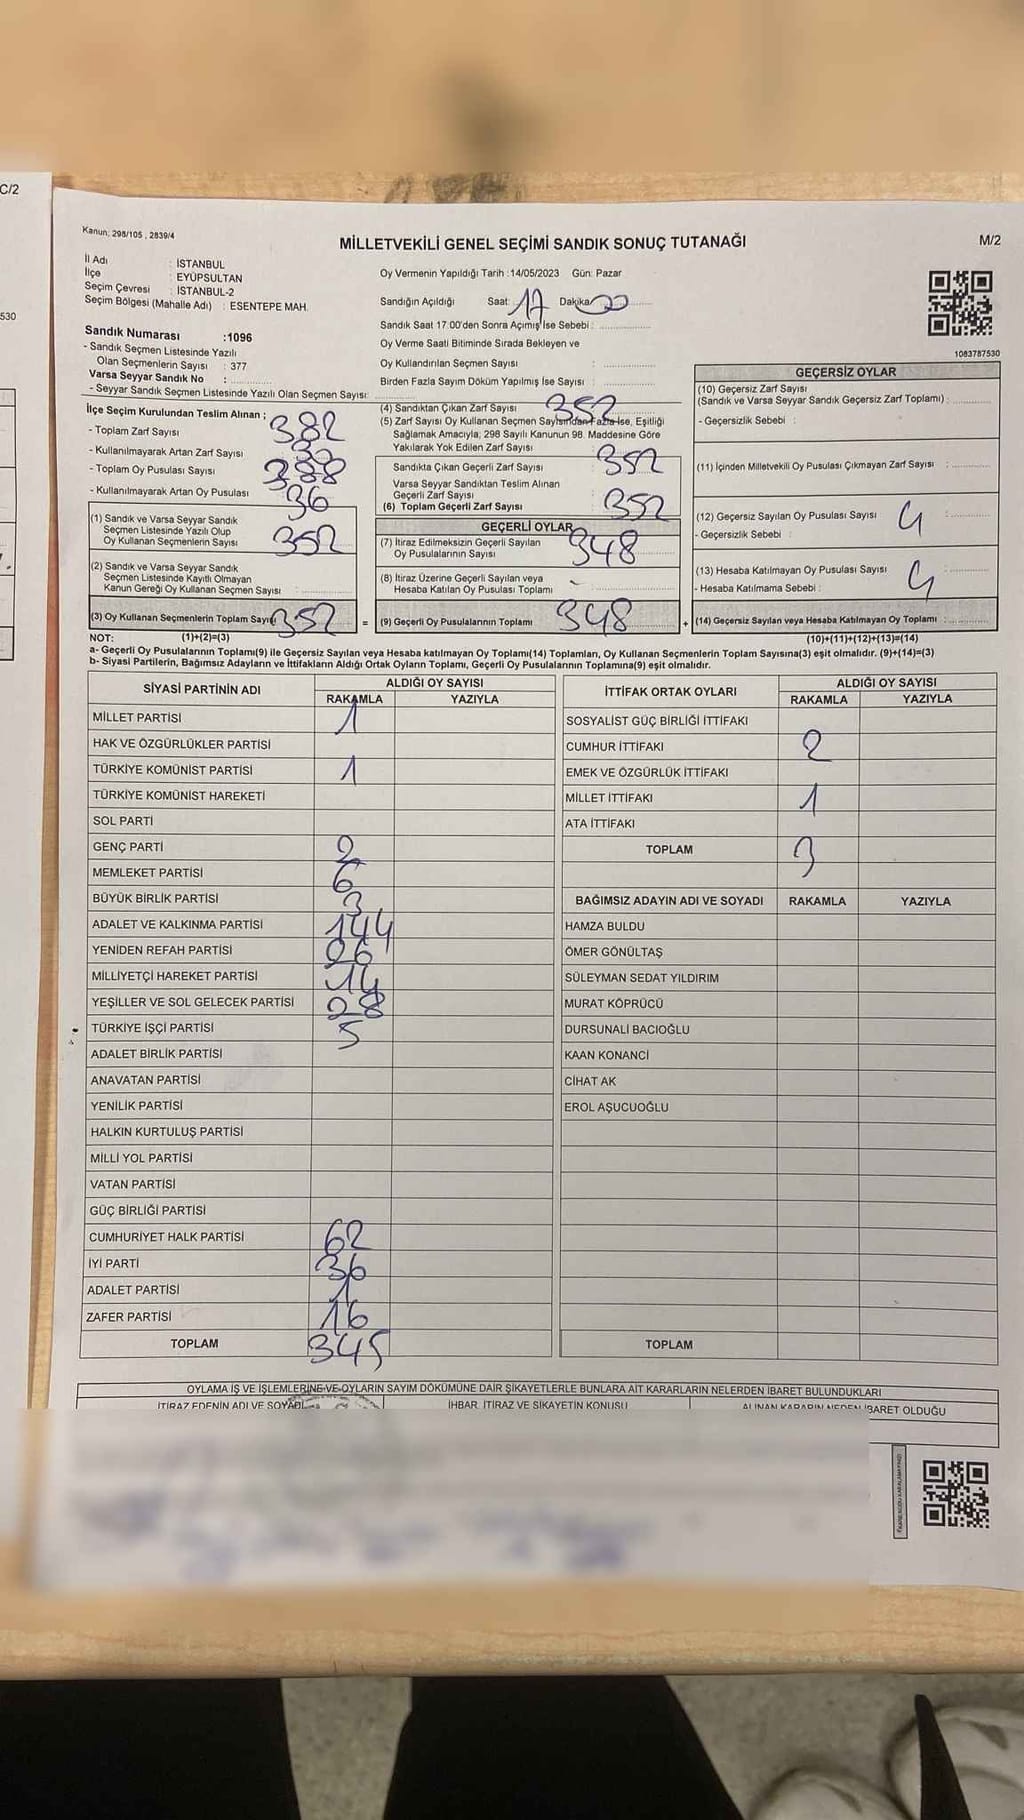 C/2
530
Kanun; 298/105 , 2839/4
MİLLETVEKİLİ GENEL SEÇİMİ SANDIK SONUÇ TUTANAĞI
M/2
İl Adı : İSTANBUL
İlçe : EYÜPSULTAN
Seçim Çevresi : İSTANBUL-2
Seçim Bölgesi (Mahalle Adı) : ESENTEPE MAH.
Sandık Numarası :1096
- Sandık Seçmen Listesinde Yazılı
Olan Seçmenlerin Sayısı : 377
Varsa Seyyar Sandık No :
- Seyyar Sandık Seçmen Listesinde Yazılı Olan Seçmen Sayısı:
Oy Vermenin Yapıldığı Tarih :14/05/2023 Gün: Pazar
Sandığın Açıldığı Saat: 17 Dakika 00
Sandık Saat 17:00'den Sonra Açımış İse Sebebi :
Oy Verme Saati Bitiminde Sırada Bekleyen ve
Oy Kullandırılan Seçmen Sayısı :
Birden Fazla Sayım Döküm Yapılmış İse Sayısı :
1083787530
İlçe Seçim Kurulundan Teslim Alınan ;
- Toplam Zarf Sayısı 382
- Kullanılmayarak Artan Zarf Sayısı
- Toplam Oy Pusulası Sayısı 388
- Kullanılmayarak Artan Oy Pusulası 36
(1) Sandık ve Varsa Seyyar Sandık
Seçmen Listesinde Yazılı Olup
Oy Kullanan Seçmenlerin Sayısı 352
(2) Sandık ve Varsa Seyyar Sandık
Seçmen Listesinde Kayıtlı Olmayan
Kanun Gereği Oy Kullanan Seçmen Sayısı :
(3) Oy Kullanan Seçmenlerin Toplam Sayısı 352 =
(4) Sandıktan Çıkan Zarf Sayısı 352
(5) Zarf Sayısı Oy Kullanan Seçmen Sayısından Fazla İse, Eşitliği
Sağlamak Amacıyla; 298 Sayılı Kanunun 98. Maddesine Göre
Yakılarak Yok Edilen Zarf Sayısı
Sandıkta Çıkan Geçerli Zarf Sayısı 352
Varsa Seyyar Sandıktan Teslim Alınan
Geçerli Zarf Sayısı
(6) Toplam Geçerli Zarf Sayısı 352
GEÇERLİ OYLAR
(7) İtiraz Edilmeksizin Geçerli Sayılan
Oy Pusulalarının Sayısı 348
(8) İtiraz Üzerine Geçerli Sayılan veya
Hesaba Katılan Oy Pusulası Toplamı -
(9) Geçerli Oy Pusulalarının Toplamı 348 +
GEÇERSİZ OYLAR
(10) Geçersiz Zarf Sayısı
(Sandık ve Varsa Seyyar Sandık Geçersiz Zarf Toplamı) :
- Geçersizlik Sebebi :
(11) İçinden Milletvekili Oy Pusulası Çıkmayan Zarf Sayısı :
(12) Geçersiz Sayılan Oy Pusulası Sayısı 4
- Geçersizlik Sebebi :
(13) Hesaba Katılmayan Oy Pusulası Sayısı :
- Hesaba Katılmama Sebebi : 4
(14) Geçersiz Sayılan veya Hesaba Katılmayan Oy Toplamı :
NOT: (1)+(2)=(3)
(10)+(11)+(12)+(13)=(14)
a- Geçerli Oy Pusulalarının Toplamı(9) ile Geçersiz Sayılan veya Hesaba katılmayan Oy Toplamı(14) Toplamları, Oy Kullanan Seçmenlerin Toplam Sayısına(3) eşit olmalıdır. (9)+(14)=(3)
b- Siyasi Partilerin, Bağımsız Adayların ve İttifakların Aldığı Ortak Oyların Toplamı, Geçerli Oy Pusulalarının Toplamına(9) eşit olmalıdır.
SİYASİ PARTİNİN ADI
ALDIĞI OY SAYISI
RAKAMLA YAZIYLA
MİLLET PARTİSİ 1
HAK VE ÖZGÜRLÜKLER PARTİSİ
TÜRKİYE KOMÜNİST PARTİSİ 1
TÜRKİYE KOMÜNİST HAREKETİ
SOL PARTİ
GENÇ PARTİ 2
MEMLEKET PARTİSİ 6
BÜYÜK BİRLİK PARTİSİ 3
ADALET VE KALKINMA PARTİSİ 144
YENİDEN REFAH PARTİSİ 26
MİLLİYETÇİ HAREKET PARTİSİ 14
YEŞİLLER VE SOL GELECEK PARTİSİ 28
TÜRKİYE İŞÇİ PARTİSİ 5
ADALET BİRLİK PARTİSİ
ANAVATAN PARTİSİ
YENİLİK PARTİSİ
HALKIN KURTULUŞ PARTİSİ
MİLLİ YOL PARTİSİ
VATAN PARTİSİ
GÜÇ BİRLİĞİ PARTİSİ
CUMHURİYET HALK PARTİSİ 62
İYİ PARTİ 36
ADALET PARTİSİ 1
ZAFER PARTİSİ 16
TOPLAM 345
İTTİFAK ORTAK OYLARI
ALDIĞI OY SAYISI
RAKAMLA YAZIYLA
SOSYALİST GÜÇ BİRLİĞİ İTTİFAKI
CUMHUR İTTİFAKI 2
EMEK VE ÖZGÜRLÜK İTTİFAKI
MİLLET İTTİFAKI 1
ATA İTTİFAKI
TOPLAM 3
BAĞIMSIZ ADAYIN ADI VE SOYADI RAKAMLA YAZIYLA
HAMZA BULDU
ÖMER GÖNÜLTAŞ
SÜLEYMAN SEDAT YILDIRIM
MURAT KÖPRÜCÜ
DURSUNALİ BACIOĞLU
KAAN KONANCİ
CİHAT AK
EROL AŞUCUOĞLU
TOPLAM
OYLAMA İŞ VE İŞLEMLERİNE VE OYLARIN SAYIM DÖKÜMÜNE DAİR ŞİKAYETLERLE BUNLARA AİT KARARLARIN NELERDEN İBARET BULUNDUKLARI
İTİRAZ EDENİN ADI VE SOYADI İHBAR, İTİRAZ VE ŞİKAYETİN KONUSU ALINAN KARARIN NEDEN İBARET OLDUĞU